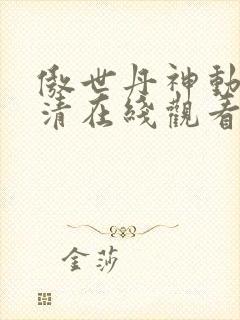 傲世丹神動
清在綫觀看
金莎